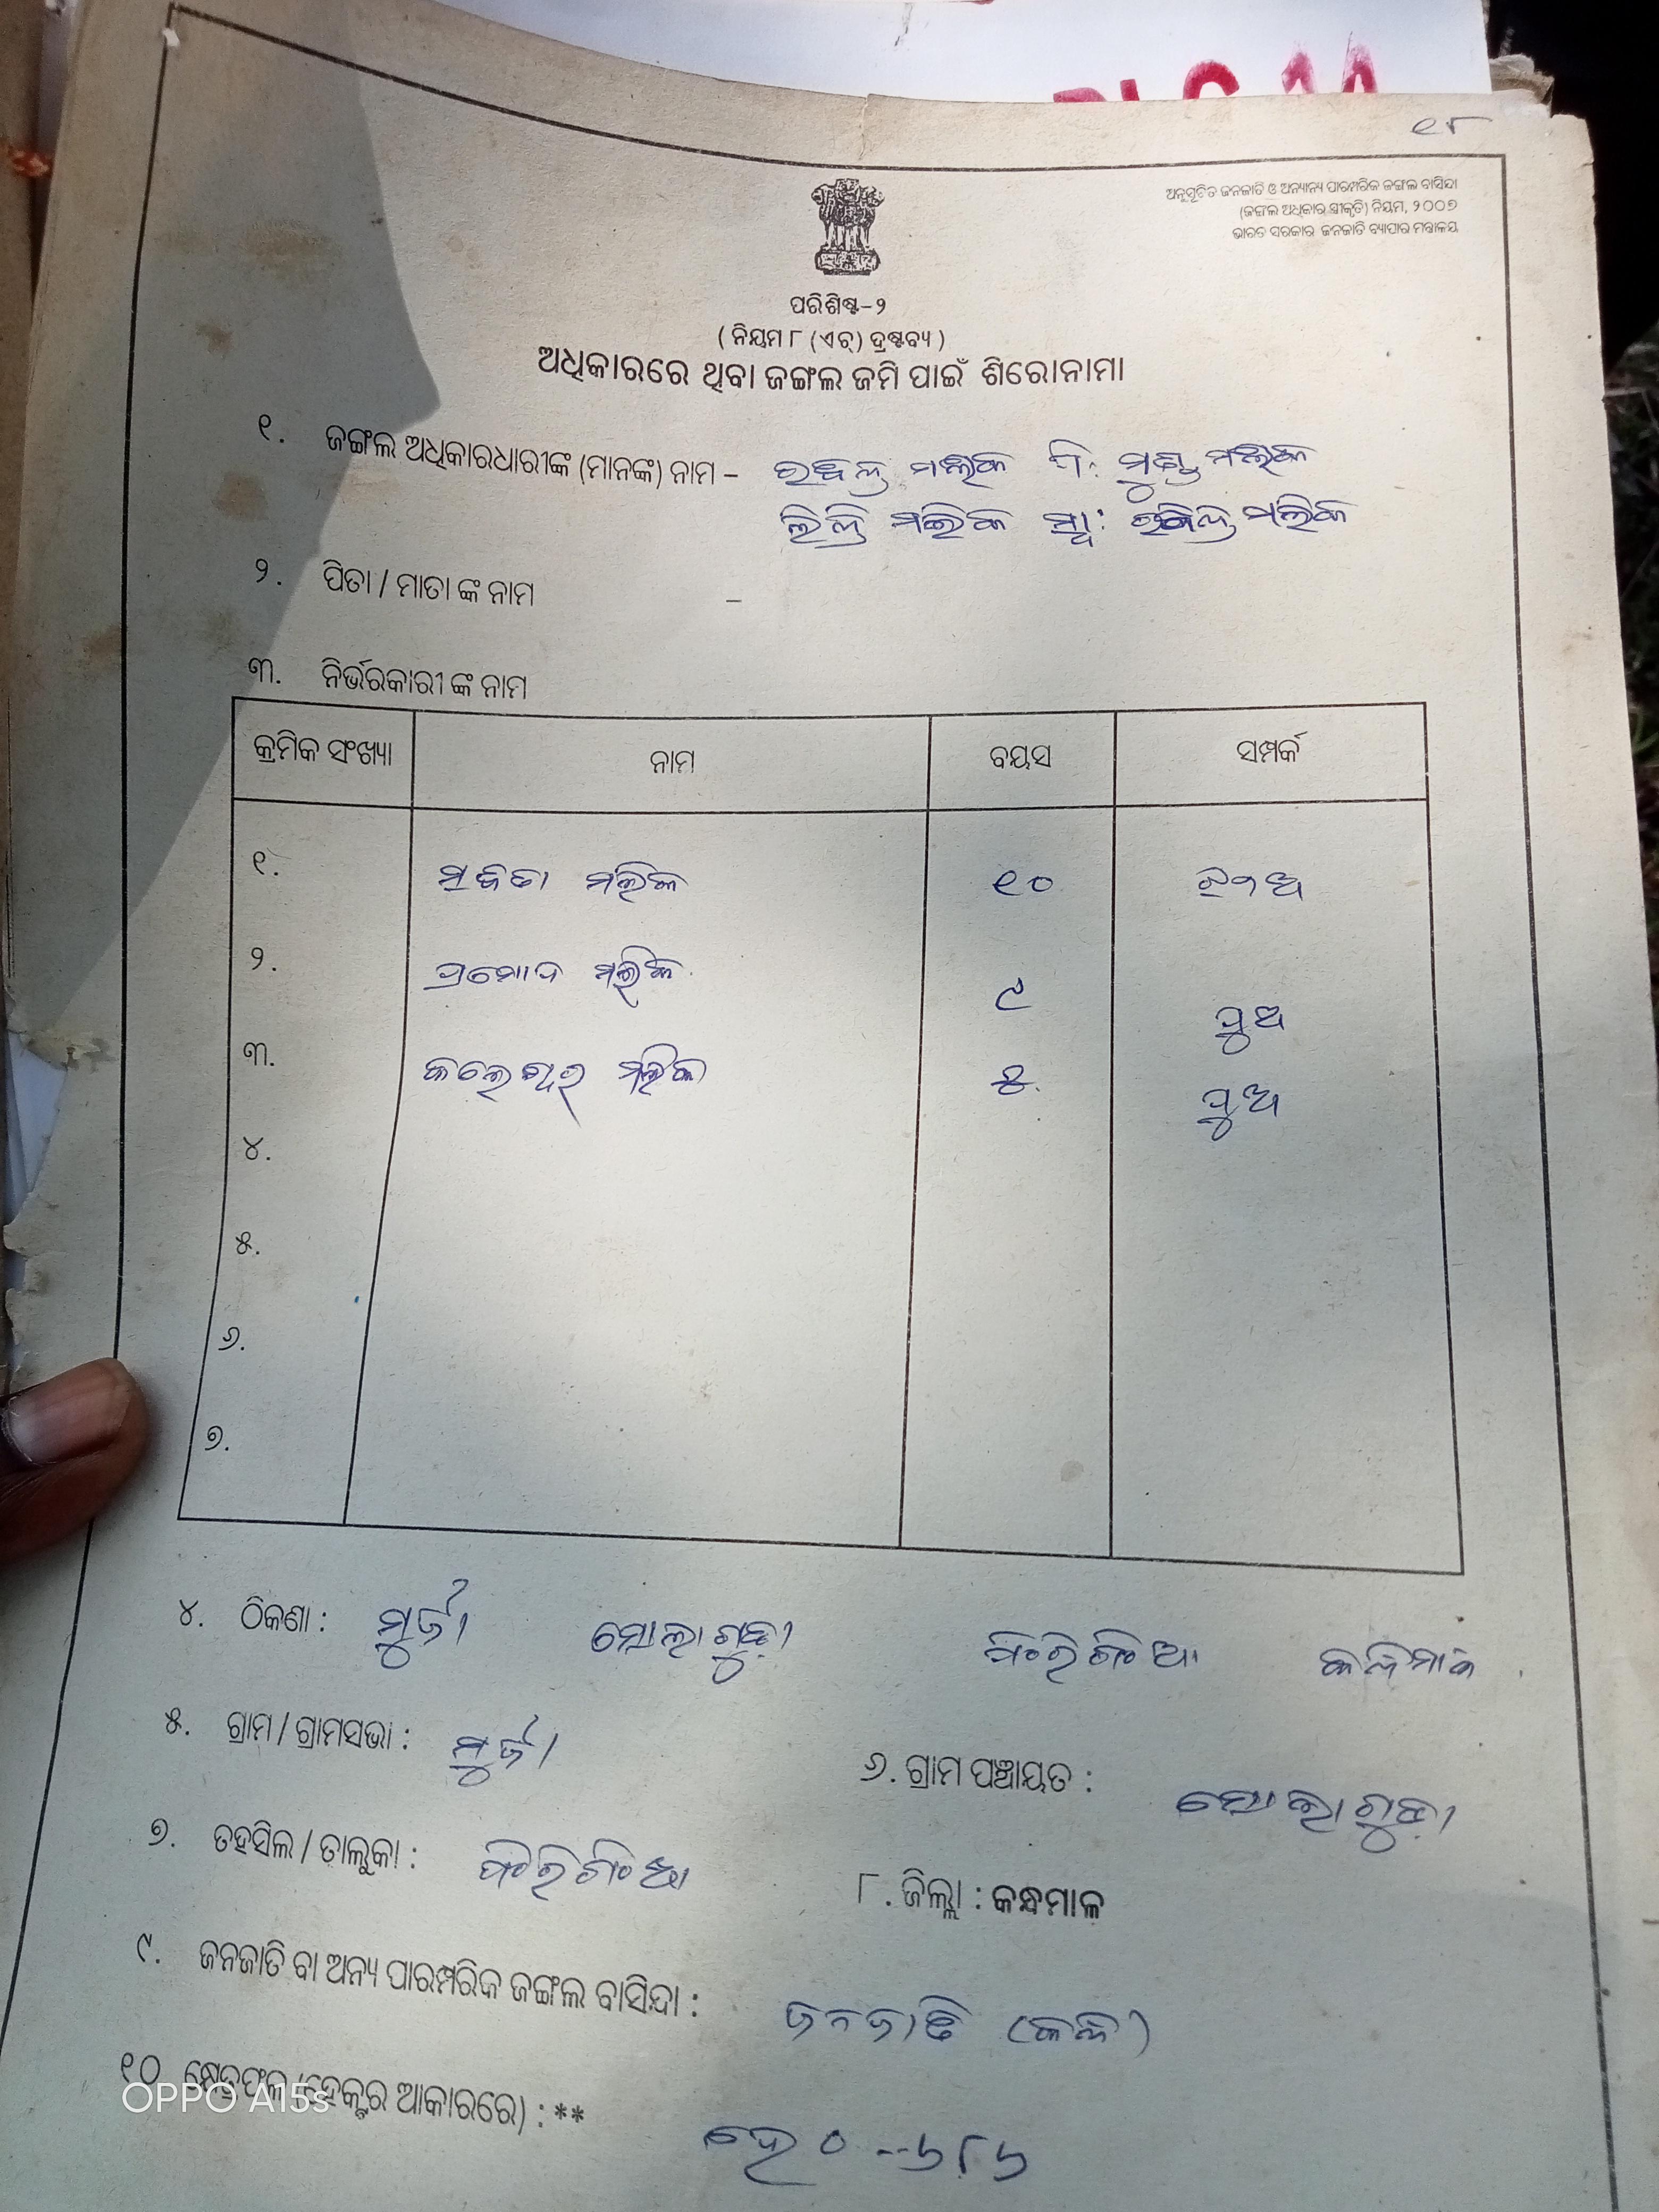 ୧୮
ଅନୁସୂଚିତ ଜନଜାତି ଓ ଅନ୍ୟାନ୍ୟ ପାରମ୍ପରିକ ଜଙ୍ଗଲ ବାସିନ୍ଦା
(ଜଙ୍ଗଲ ଅଧିକାର ସ୍ୱୀକୃତି) ନିୟମ, ୨୦୦୭
ଭାରତ ସରକାର ଜନଜାତି ବ୍ୟାପାର ମନ୍ତ୍ରାଳୟ
ପରିଶିଷ୍ଟ-୨
( ନିୟମ ୮ (ଏଚ୍) ଦ୍ରଷ୍ଟବ୍ୟ )
ଅଧିକାରରେ ଥିବା ଜଙ୍ଗଲ ଜମି ପାଇଁ ଶିରୋନାମା
୧. ଜଙ୍ଗଲ ଅଧିକାରଧାରୀଙ୍କ (ମାନଙ୍କ) ନାମ – ମଲ୍ଲିକ ପି: ମଲ୍ଲିକ
ମଲିକ ସ୍ୱା: ମଲିକ
୨. ପିତା / ମାତା ଙ୍କ ନାମ –
୩. ନିର୍ଭରକାରୀ ଙ୍କ ନାମ
କ୍ରମିକ ସଂଖ୍ୟା ନାମ ବୟସ ସମ୍ପର୍କ
୧. ମଲିକ ୧୦ ଝିଅ
୨. ପ୍ରମୋଦ ମଲିକ ୯ ପୁଅ
୩. ମଲିକ ପୁଅ
୪.
୫.
୬.
୭.
୪. ଠିକଣା : ମୁର୍ଜା ଫିରିଙ୍ଗିଆ କନ୍ଧମାଳ
୫. ଗ୍ରାମ / ଗ୍ରାମସଭା : ମୁର୍ଜା
୬. ଗ୍ରାମ ପଞ୍ଚାୟତ :
୭. ତହସିଲ / ତାଲୁକା : ଫିରିଙ୍ଗିଆ
୮. ଜିଲ୍ଲା : କନ୍ଧମାଳ
୯. ଜନଜାତି ବା ଅନ୍ୟ ପାରମ୍ପରିକ ଜଙ୍ଗଲ ବାସିନ୍ଦା : ଜନଜାତି (କନ୍ଧ)
୧୦ କ୍ଷେତ୍ରଫଳ (ହେକ୍ଟର ଆକାରରେ) : **
ହେ ୦ -୬୮୬
OPPO A15s